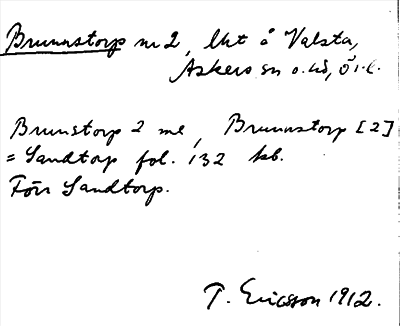 Brunnstorp nr 2, lht å Valsta,
Askers sn o. hd, Ö. l.
Brunstorp 2 me, Brunnstorp [2]
= Sandtorp fol. 132 kb.
Förr Sandtorp.
T. Ericsson 1912.